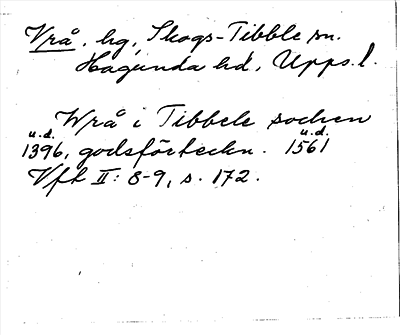 Vrå, hg, Skogs-Tibble sn.
Hagunda hd, Upps. l.
Wrå i Tibbele sochen
u.d. u.d.
1396, godsförteckn. 1561
Vft II: 8-9, s. 172.